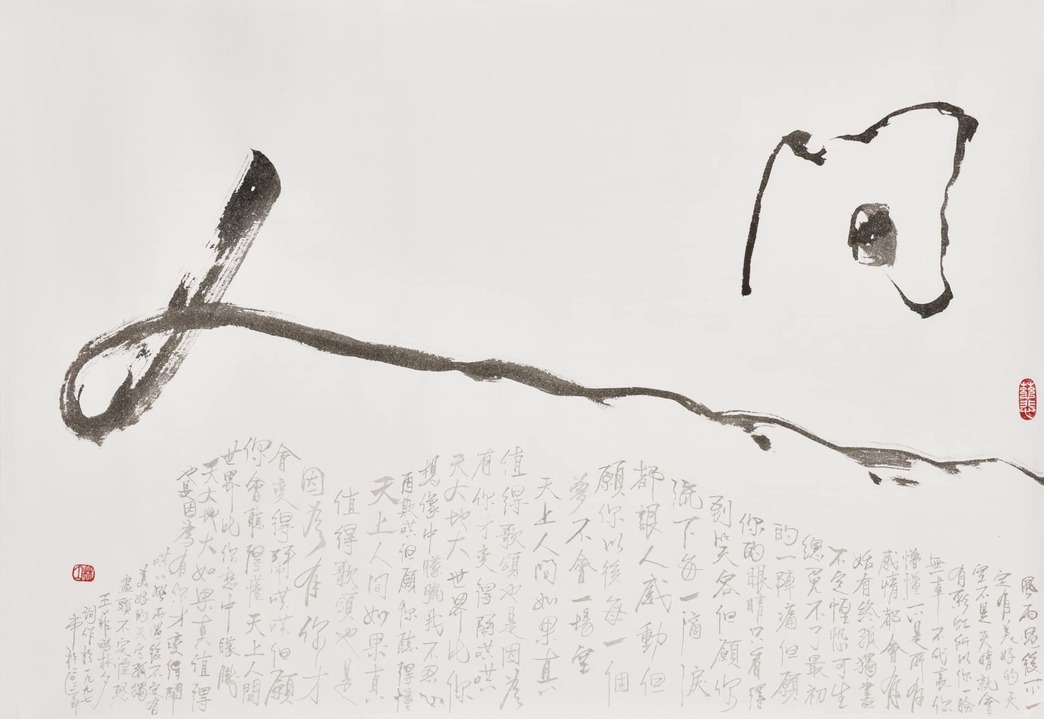 间
人
風雨過後不一
定有美好的天
空不是天晴就會
有彩虹所以你一臉
無辜 不代表你
懵懂 不是所有
感情都會有
始有終孤獨盡
不定惶恐可生
總免不了最初
的一陣痛但願
你的眼睛只看得
到笑容但願你
流下每一滴淚
都讓人感動但
願你以後每一個
夢不會一場空
天上人间如果真
值得歌頌也是因为
有你才变得鬧哄哄
天大地大世界比你
想像中朦朧我不忍心
再欺哄但願你聽得懂
天上人间如果真
值得歌頌也是
因为有你才
會变得鬧哄哄但願
你會聽得懂 天上人間
世界比你想中朦朧
天大地大如果真值得
也是因为有你才变得鬧
哄哄 風雨過後不定有
美好的天空孤獨
盡頭不定惶恐
王菲唱林夕
詞作於一九九七
年